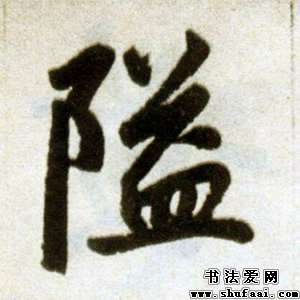 隘
书法爱网
www.shufaai.com